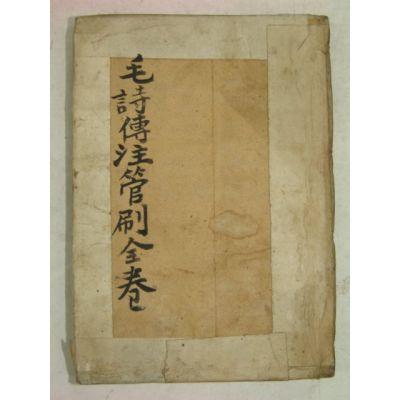 毛詩傳注管刷全卷